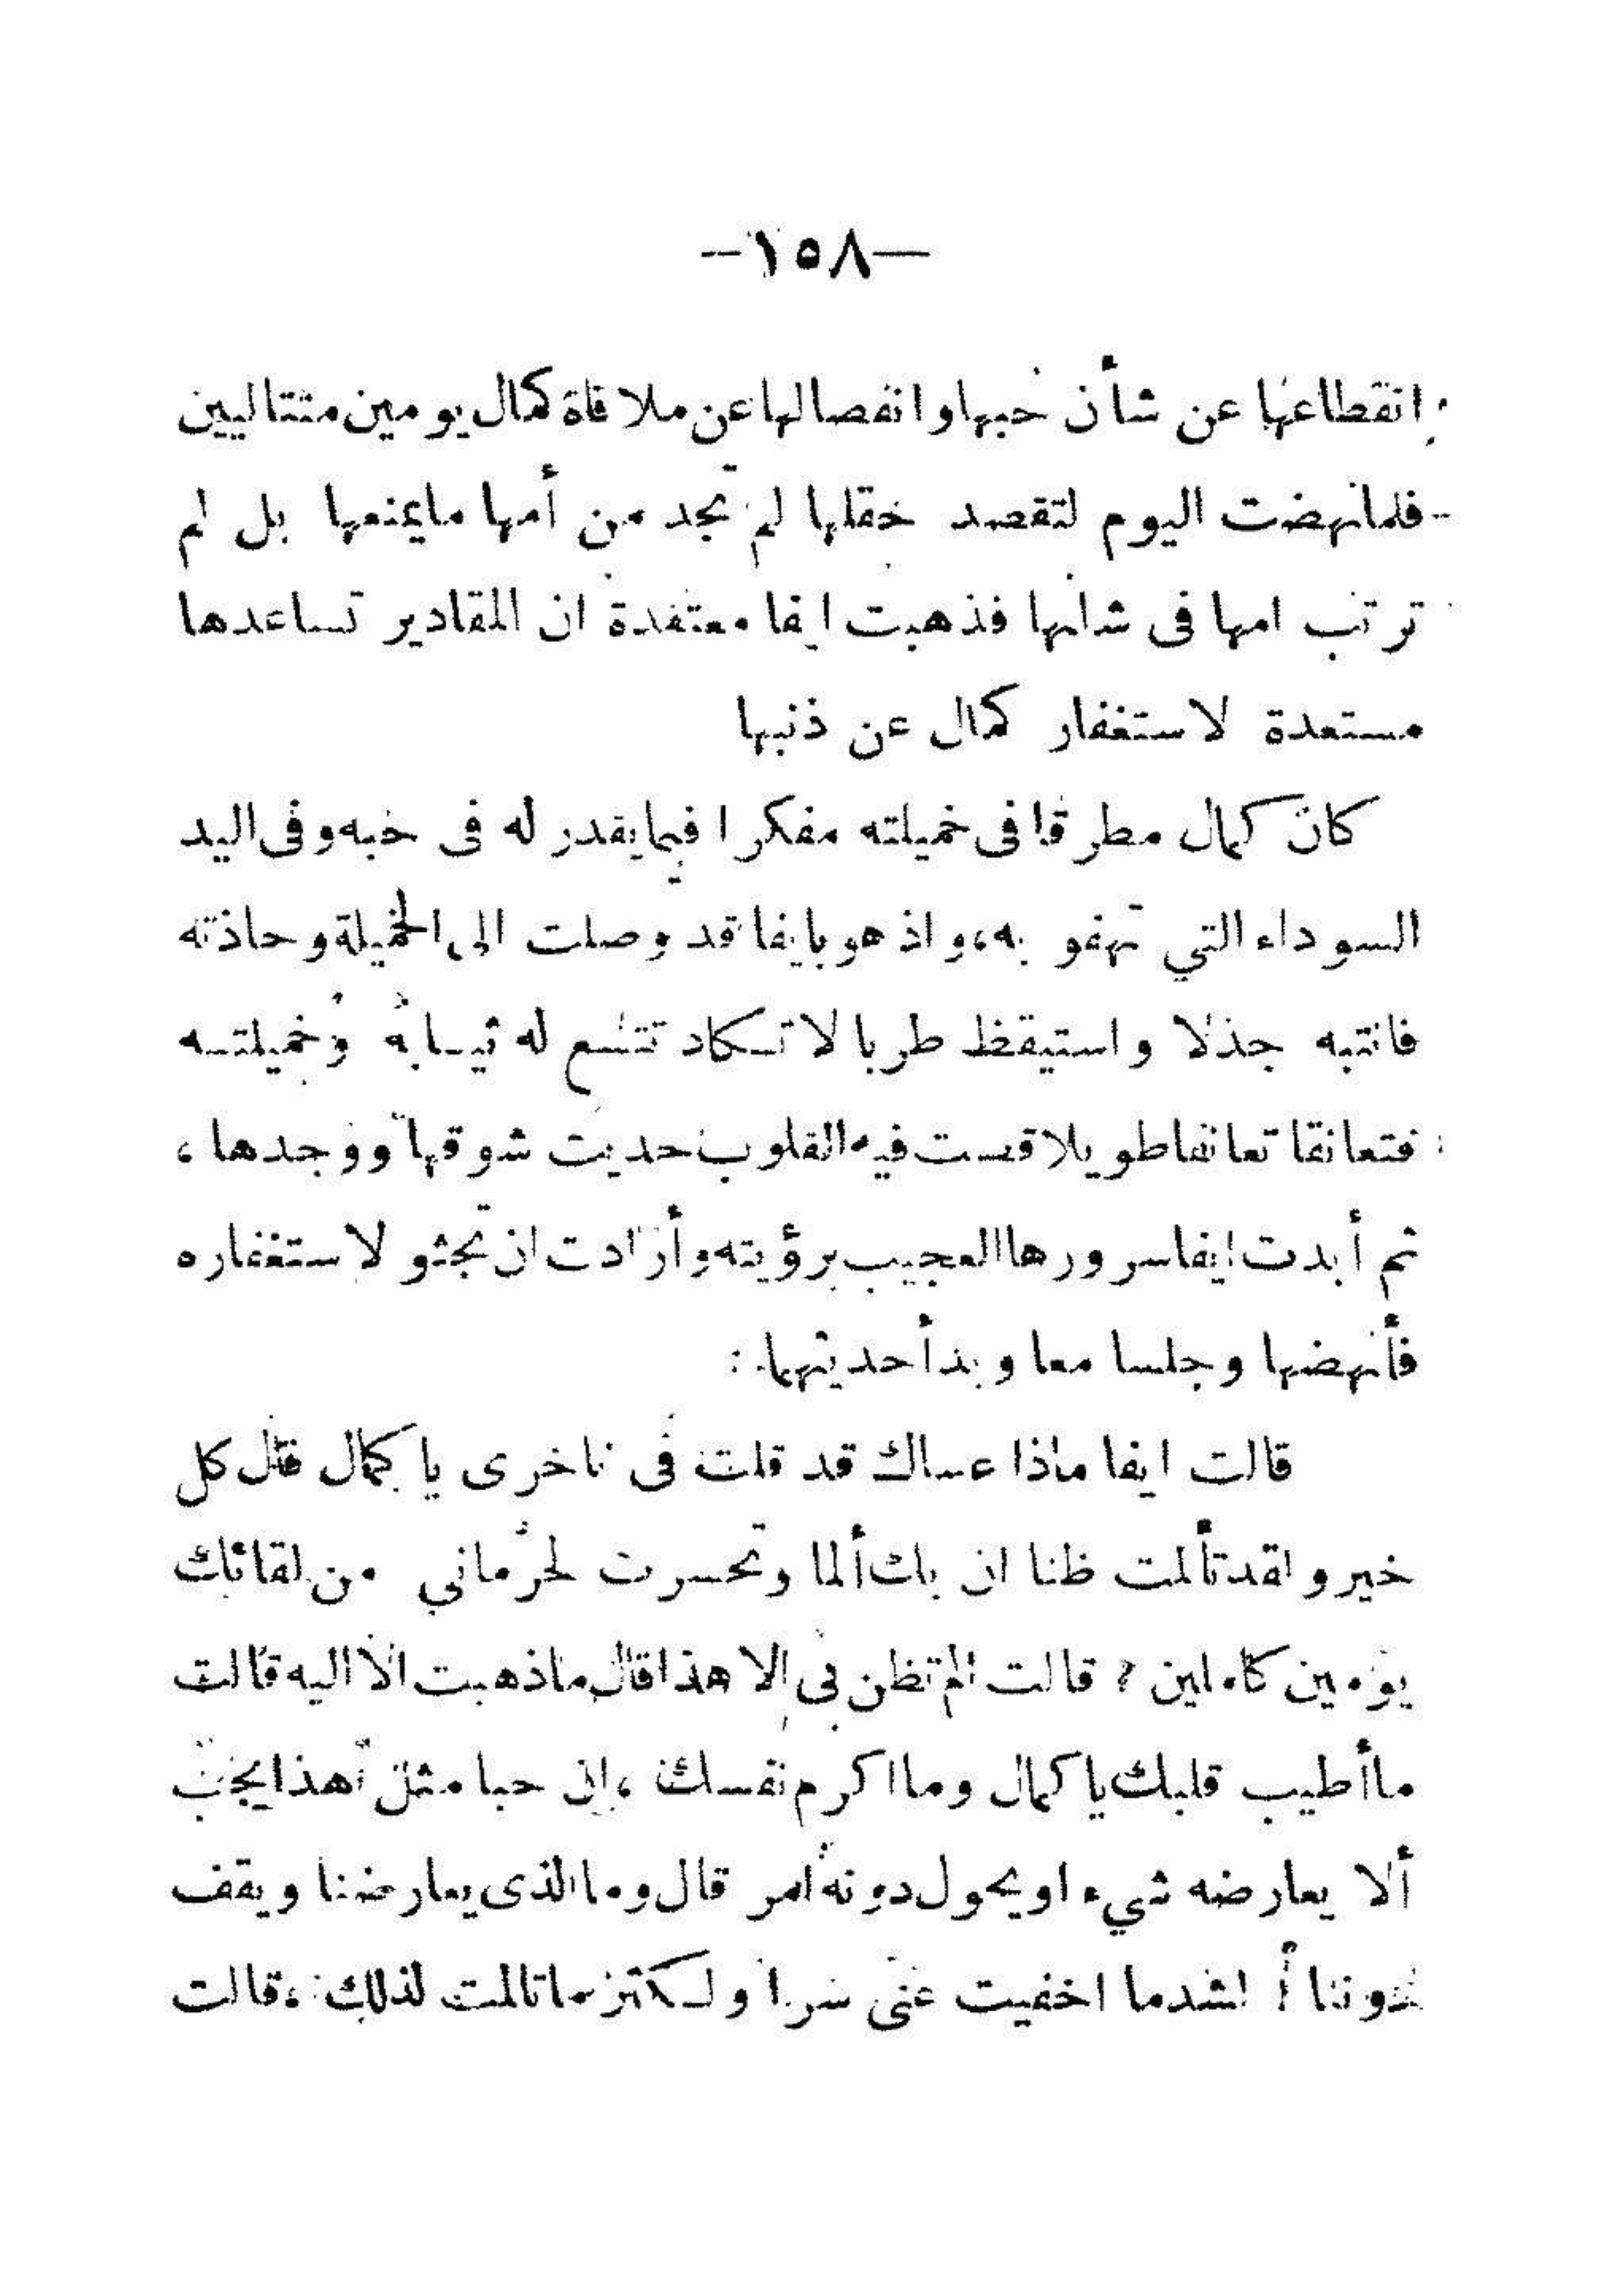 —١٥٨—
انقطاعها عن شأن حبها وانفصالها عن ملاقاة كمال يومين متتاليين
فلما نهضت اليوم لتقصد حقلها لم تجد من أمها ما يمنعها بل لم
ترتب امها فى شانها فذهبت ايفا معتقدة ان المقادير تساعدها
مستعدة لاستغفار كمال عن ذنبها
كان كمال مطرقا فى خميلته مفكرا فيما يقدر له فى حبه وفى اليد
السوداء التي تهفو به، واذ هو بايفا قد وصلت الى الخميلة وحاذته
فانتبه جذلا واستيقظ طربا لا تكاد تتسع له ثيابه وخميلته
فتعانقا تعانقا طويلا قصت فيه القلوب حديث شوقها ووجدها ،
ثم أبدت ايفا سرورها العجيب برؤيته وأرادت ان تجثو لاستغفاره
فأنهضها وجلسا معا وبدأ حديثهما :
قالت ايفا ماذا عساك قد قلت فى تاخرى يا كمال قال كل
خير ولقد تألمت ظنا ان بك ألما وتحسرت لحرماني من لقائك
يومين كاملين ؟ قالت الم تظن بى إلا هذا قال ما ذهبت الا اليه قالت
ما أطيب قلبك يا كمال وما اكرم نفسك ، ان حبا مثل هذا يجب
ألا يعارضه شيء او يحول دونه امر قال وما الذى يعارضنا ويقف
دوننا أ لشدما اخفيت عنى سرا ولكثر ما تالمت لذلك ، قالت